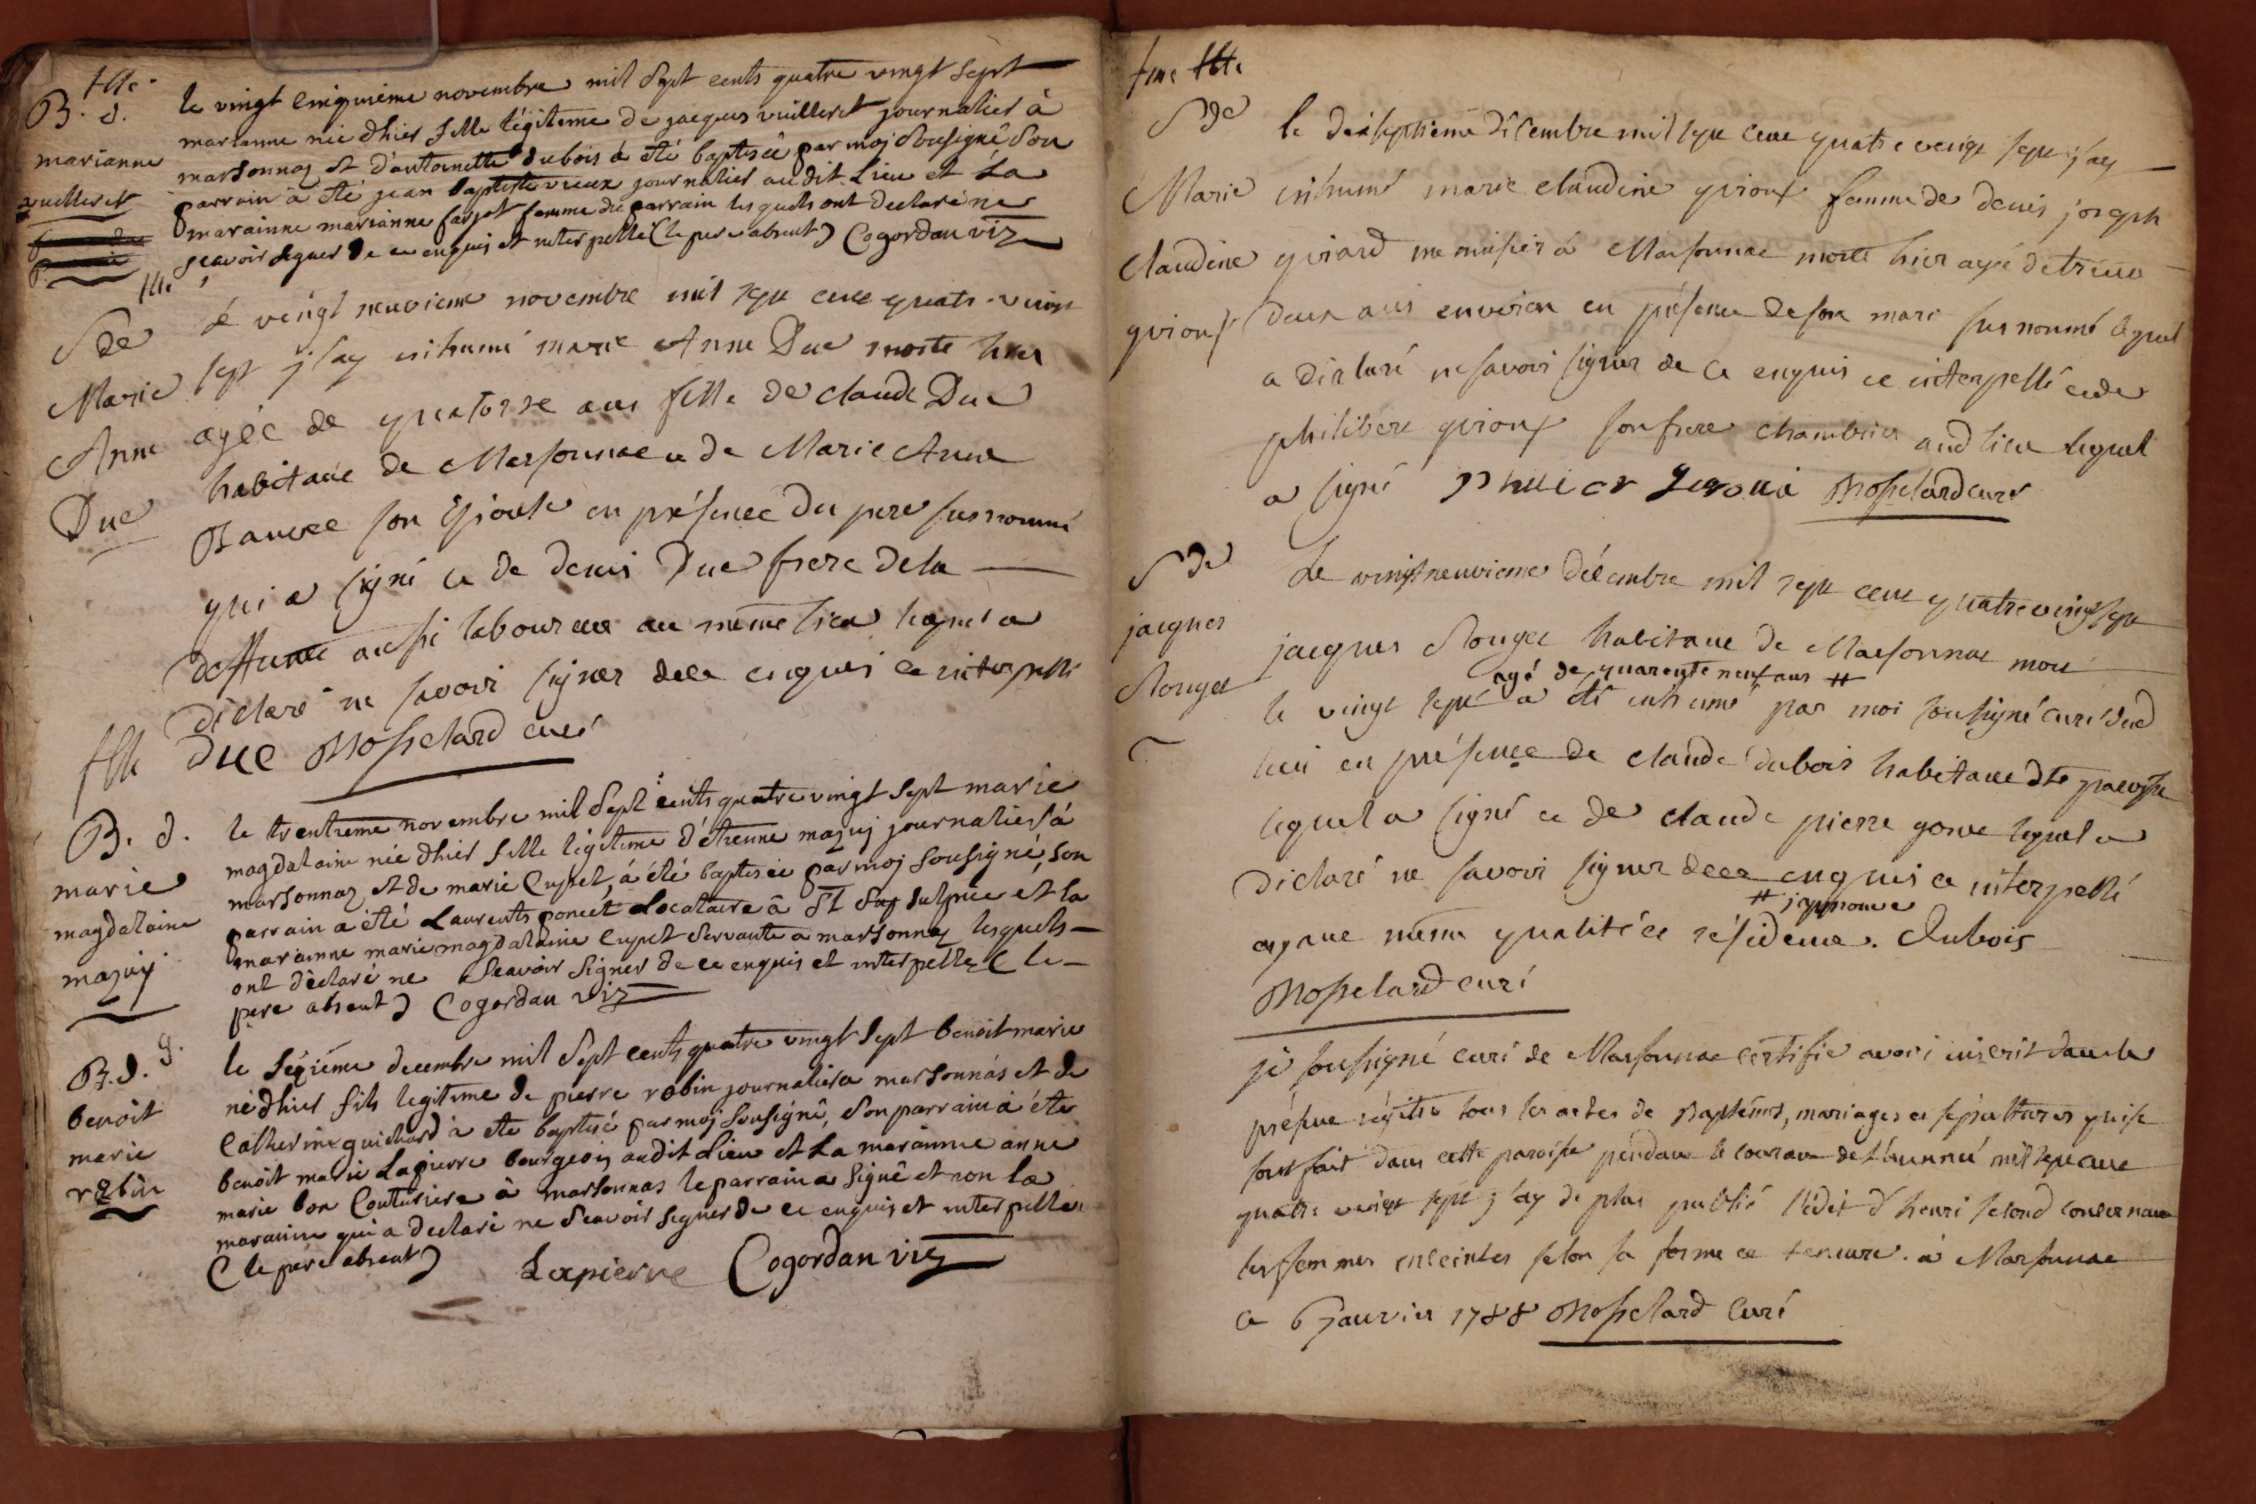 flle
B. d.
marianne
vuilleret
le vingt cinquiéme novembre mil sept cents quatre vingt sept
marianne née d'hier fille légitime de jacques vuilleret journalier à
marsonnaz et d'antoinette dubois à été baptisée par moj sousigné, son
parrain à été jean baptiste vieux journalier audit lieu et la
marainne marianne farjot femme du parrain lesquels ont declaré ne
scavoir signer de ce enquis et interpellé (le pere absent) Cogordan viz
flle
S de
Marie
Anne
Duc
Le vingt neuvieme novembre mil sept cent quatre vingt
sept j'ay inhumé marie Anne Duc morte hier
agée de quatorze ans fille de claude Duc
habitant de Marsonnac et de Marie Anne
son épouse en présence du pere susnommé
qui a signé et de denis Duc frere de la
deffunte aussi laboureur au même lieu lequel a
déclaré ne savoir signer de ce enquis et interpellé
Duc Mosselard curé
flle
B. d.
marie
magdalaine
mazuj
le trentieme novembre mil sept cents quatre vingt sept marie
magdalaine née d'hier fille légitime d'étienne mazuj journalier à
marsonnaz et de marie Cupet, à été baptisée par moj sousigné, son
parrain a été Laurents poncet Locataire à St sulpice et la
marainne marie magdalaine Cupet servante a marsonnaz lesquels
ont déclaré ne scavoir signer de ce enquis et interpellez (le
pere absent) Cogordan viz
B. d. g.
benoit
marie
robin
le séxiéme decembre mil sept cents quatre vingt sept benoit marie
né d'hier fils legitime de pierre robin journalier a marsonnas et de
Catherine guichard à été baptisé par moj sousigné, son parrain à été
benoit marie Lapierre bourgeois audit lieu et la marainne anne
marie bon Couturiere à marsonnas le parrain a signé et non la
marainne qui a declaré ne scavoir signer de ce enquis et interpellée
(le pere absent) Lapierre Cogordan viz
fme
S de
Marie
Claudine
guioux
le dixseptieme décembre mil sept cent quatre vingt sept j'ay
inhumé marie claudine guioux femme de denis joseph
guiard menuisier à Marsonnac morte hier agée de trente
deux ans environ en présence de son mari susnommé lequel
a déclaré ne savoir signer de ce enquis et interpellé et de
philibert guioux son frere chambrier aud lieu lequel
a signé Mosselard curé
S de
jacques
Rouget
Le vingtneuvieme décembre mil sept cent quatre vingt sept
jacques Rouget habitant de Marsonnac mort
agé de quarente neuf ans #
le vingt sept a été inhumé par moi soussigné curé dud
lieu en présence de claude dubois habitant dte paroisse
lequel a signé et de claude pierre gonet lequel a
déclaré ne savoir signer de ce enquis et interpellé
#
ayant même qualité et résidence. Dubois
Mosselard curé
je soussigné curé de Marsonnac certifie avoir inscrit dans le
présent régitre tous les actes de Baptêmes, mariages et sépultures qui se
sont fait dans cette paroisse pendant le courant de l'année mil sept cent
quatre vingt sept j'ay de plus publié l'édit d'henri second concernant
les femmes enceintes selon sa forme et teneure. à Marsonnac
ce 6 janvier 1788 Mosselard Curé